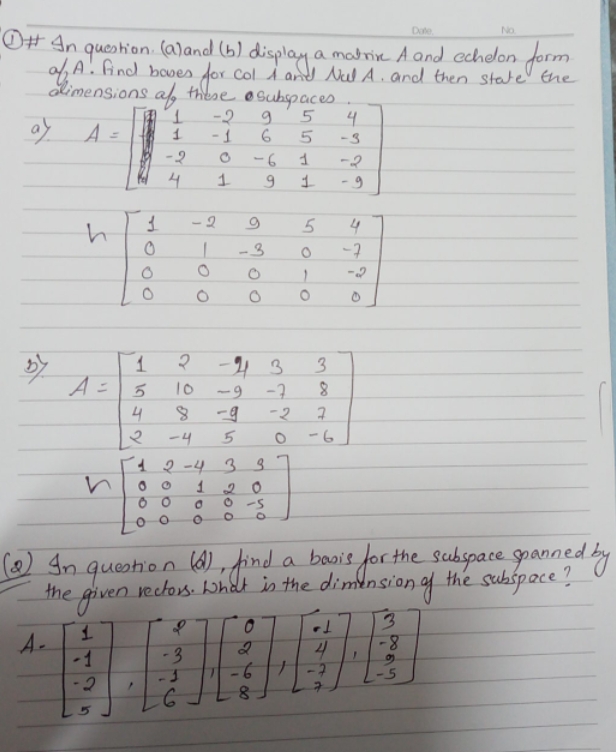 Date. No.
①# In question. (a) and (b) display a matrix A and echelon form
of A. Find bases for Col A and Nul A. and then state the
dimensions of these subspaces.
1 -2 9 5 4
a) A = 1 -1 6 5 -3
-2 0 -6 1 -2
4 1 9 1 -9
1 -2 9 5 4
0 1 -3 0 -7
0 0 0 1 -2
0 0 0 0 0
b) 1 2 -4 3 3
A = 5 10 -9 -7 8
4 8 -9 -2 7
2 -4 5 0 -6
1 2 -4 3 3
0 0 1 2 0
0 0 0 0 -5
0 0 0 0 0
(2) In question (A), find a basis for the subspace spanned by
the given vectors. What is the dimension of the subspace?
A- 1 2 0 -1 3
-1 , -3 , 2 , 4 , -8
-2 -1 -6 -7 9
5 6 8 7 -5